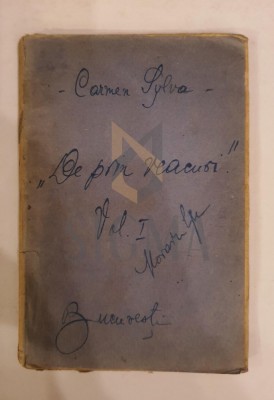 - Carmen Sylva -
„De prin veacuri."
Vol. I
București